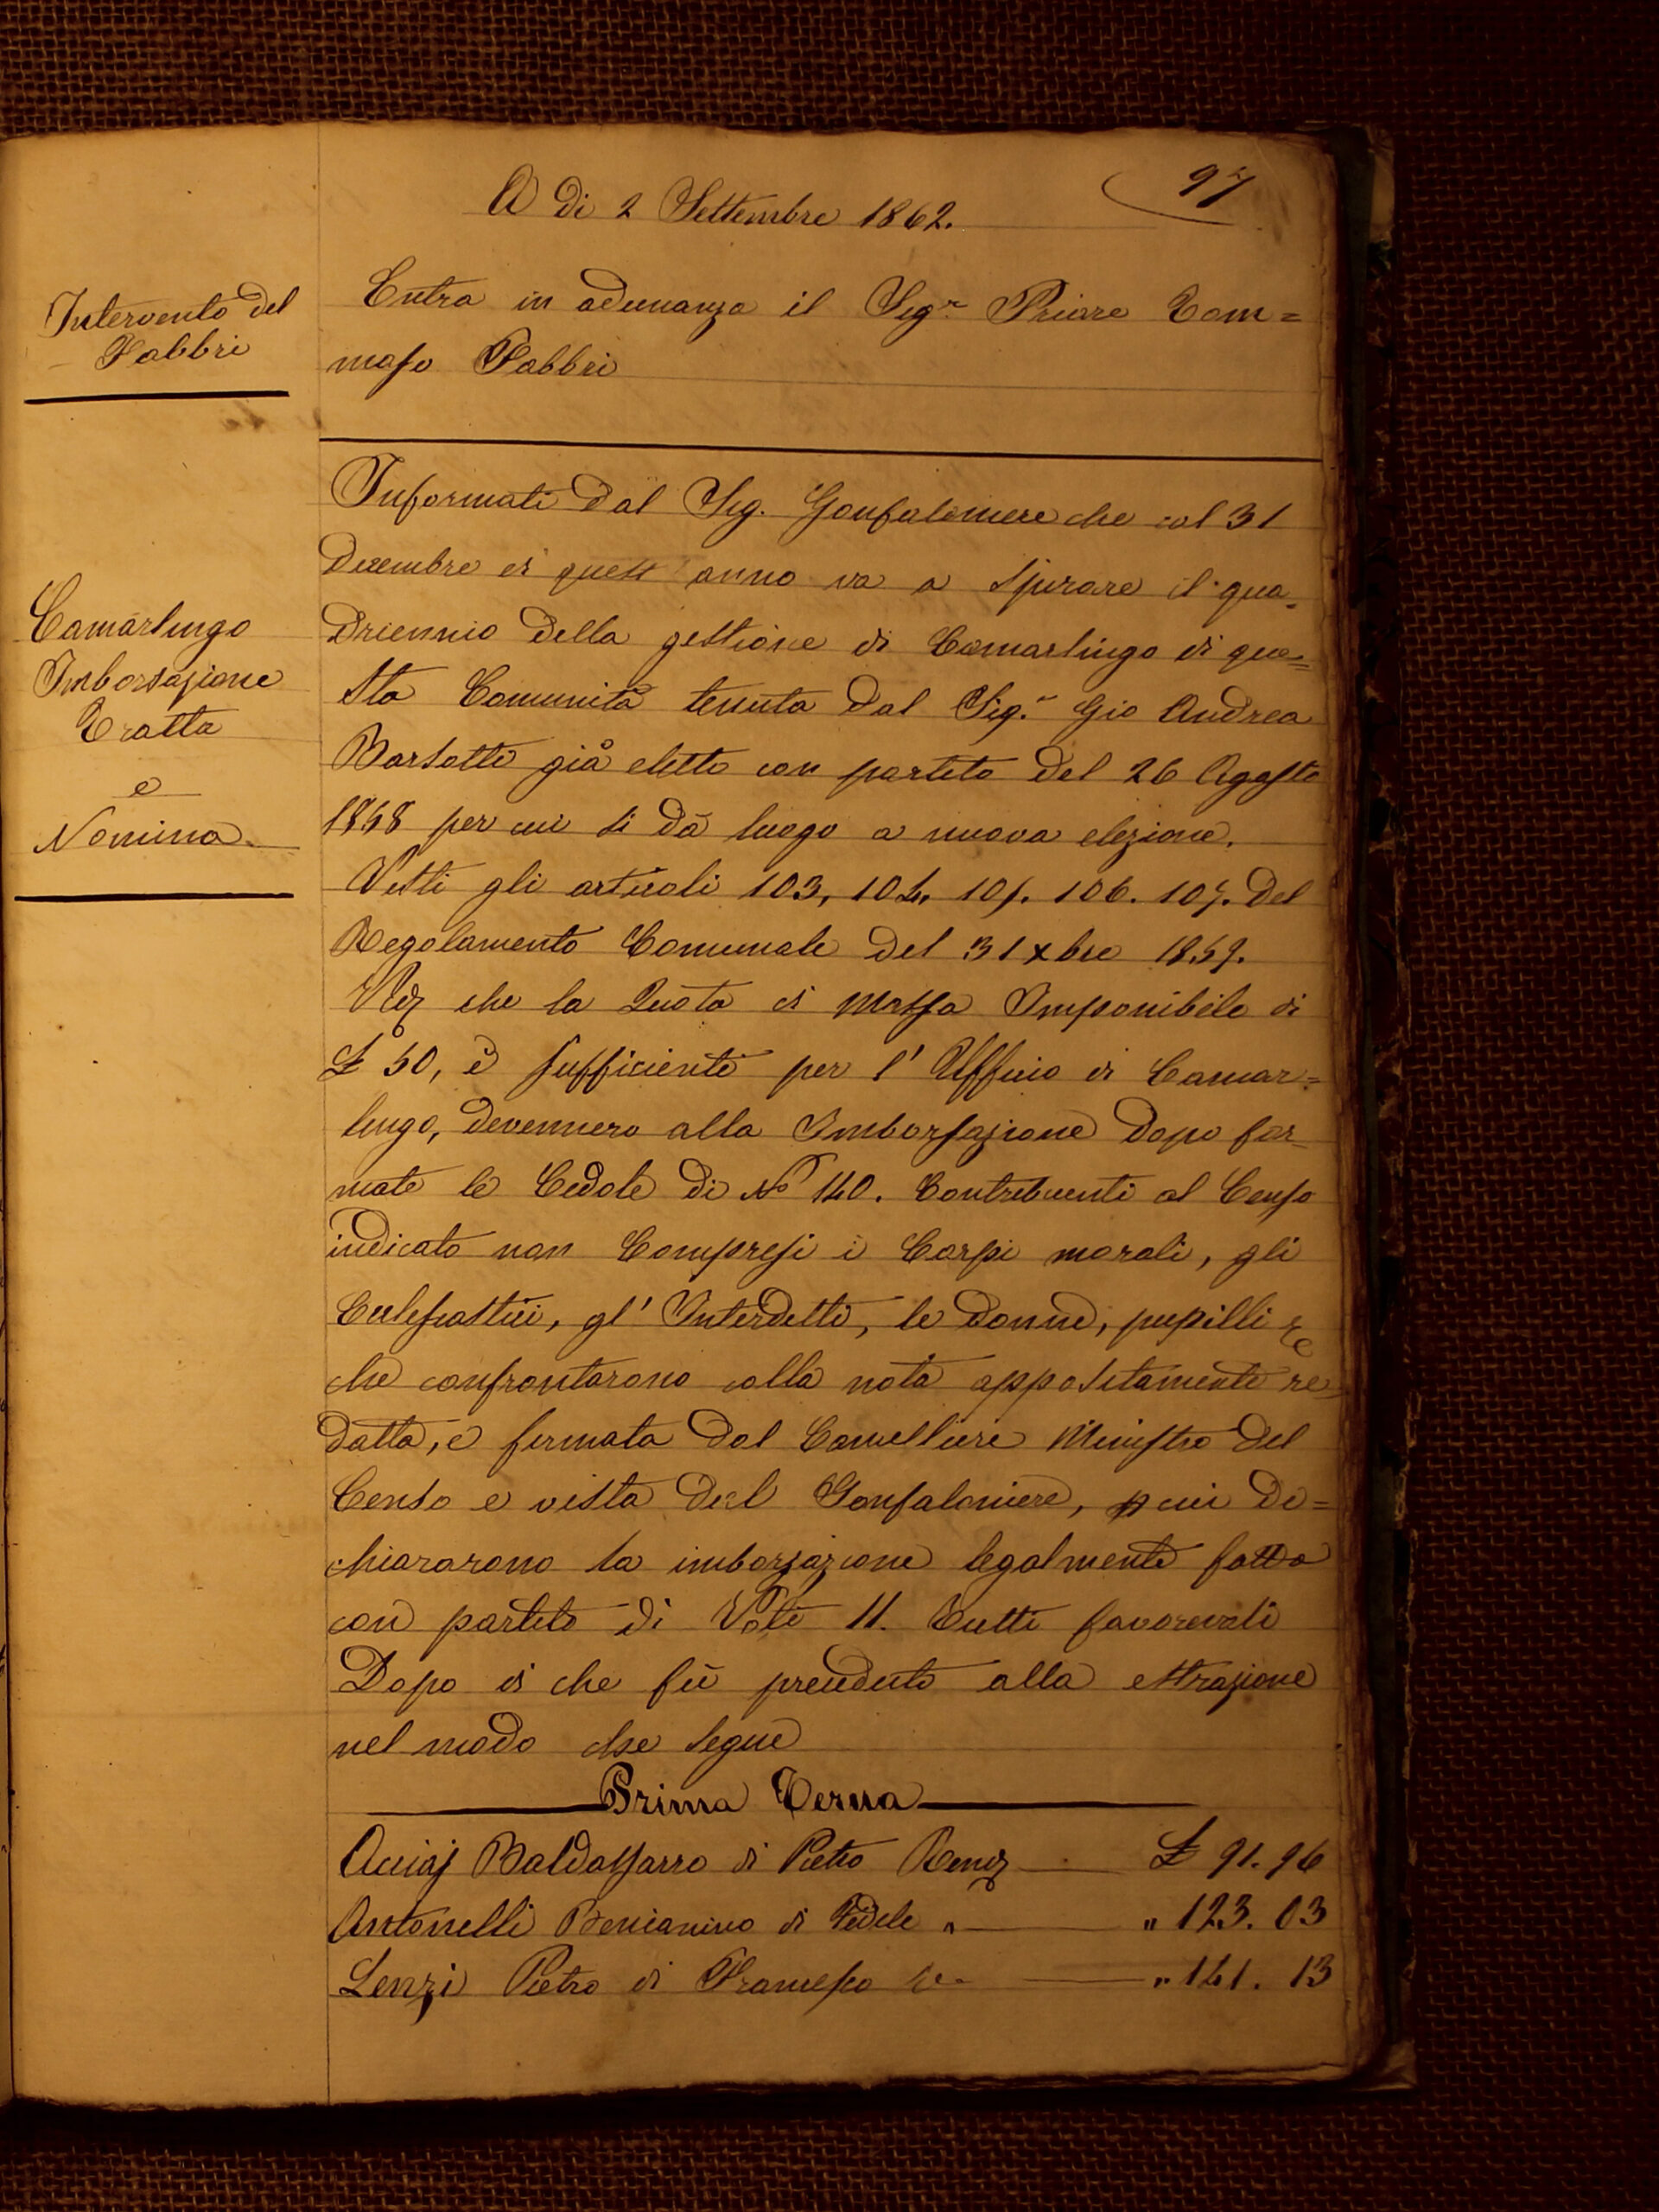 97
A dì 2 Settembre 1862.
Intervento del
Fabbri
Entra in adunanza il Sigr. Priore Tom=
maso Fabbri
Camarlingo
Imborsazione
Tratta
e
Nomina
Informati dal Sig. Gonfaloniere che col 31
Decembre di quest'anno va a spirare il qua-
driennio della gestione di Camarlingo di que=
sta Comunità tenuta dal Sigr. Gio Andrea
Barsotti già eletto con partito del 26 Agosto
1858 per cui si dà luogo a nuova elezione.
Visti gli articoli 103, 104, 105. 106. 107. del
Regolamento Comunale del 31 xbre 1859.
che la Quota di Massa Imponibile di
£ 50, è sufficiente per l'Uffficio di Camar=
lingo, devennero alla Imborsazione dopo for-
mate le Cedole di No 140. Contribuenti al Censo
indicato non Compresi i Corpi morali, gli
Eclesiastici, gl'Interdetti, le donne, pupilli &c
che confrontarono colla nota appositamente re
datta, e firmata dal Cancelliere Ministro del
Censo e vista dal Gonfaloniere, p cui di=
chiararono la imborsazione legalmente fatta
con partito di Voti 11. Tutti favorevoli
Dopo di che fù preceduto alla estrazione
nel modo che segue
Prima Terna
Acciaj Baldassarre di Pietro Rend £ 91. 96
Antonelli Beniamino di Fedele " " 123. 03
Lenzi Pietro di Francesco " 141. 13